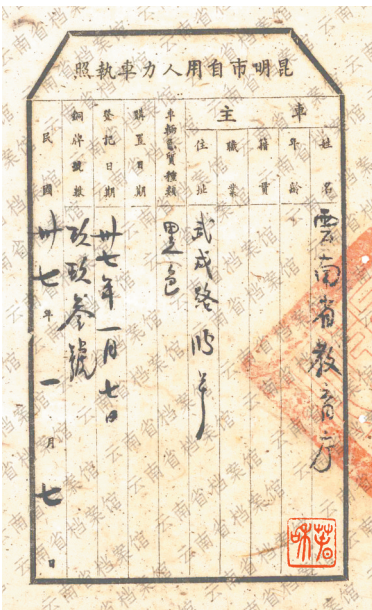 昆明市自用人力車執照
車主
姓名 雲南省教育厅
年齡
籍貫
職業
住址 武成路
車輛種類 黑色
購置日期
登記日期 卅七年一月七日
銅牌號數 玖玖叁號
民國卅七年一月七日
云南省档案馆